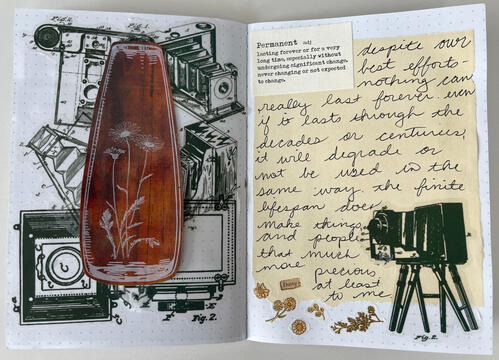 Fig. 2.
Fig. 1.
C
F
E
Fig. 2.
Permanent adj
lasting forever or for a very
long time, especially without
undergoing significant change.
never changing or not expected
to change.
despite our
best efforts-
nothing can
really last forever. even
if it lasts through the
decades or centuries,
it will degrade or
not be used in the
same way. the finite
lifespan does
make things
and people
that much
more precious,
at least
to me
Diary
Fig. 2.